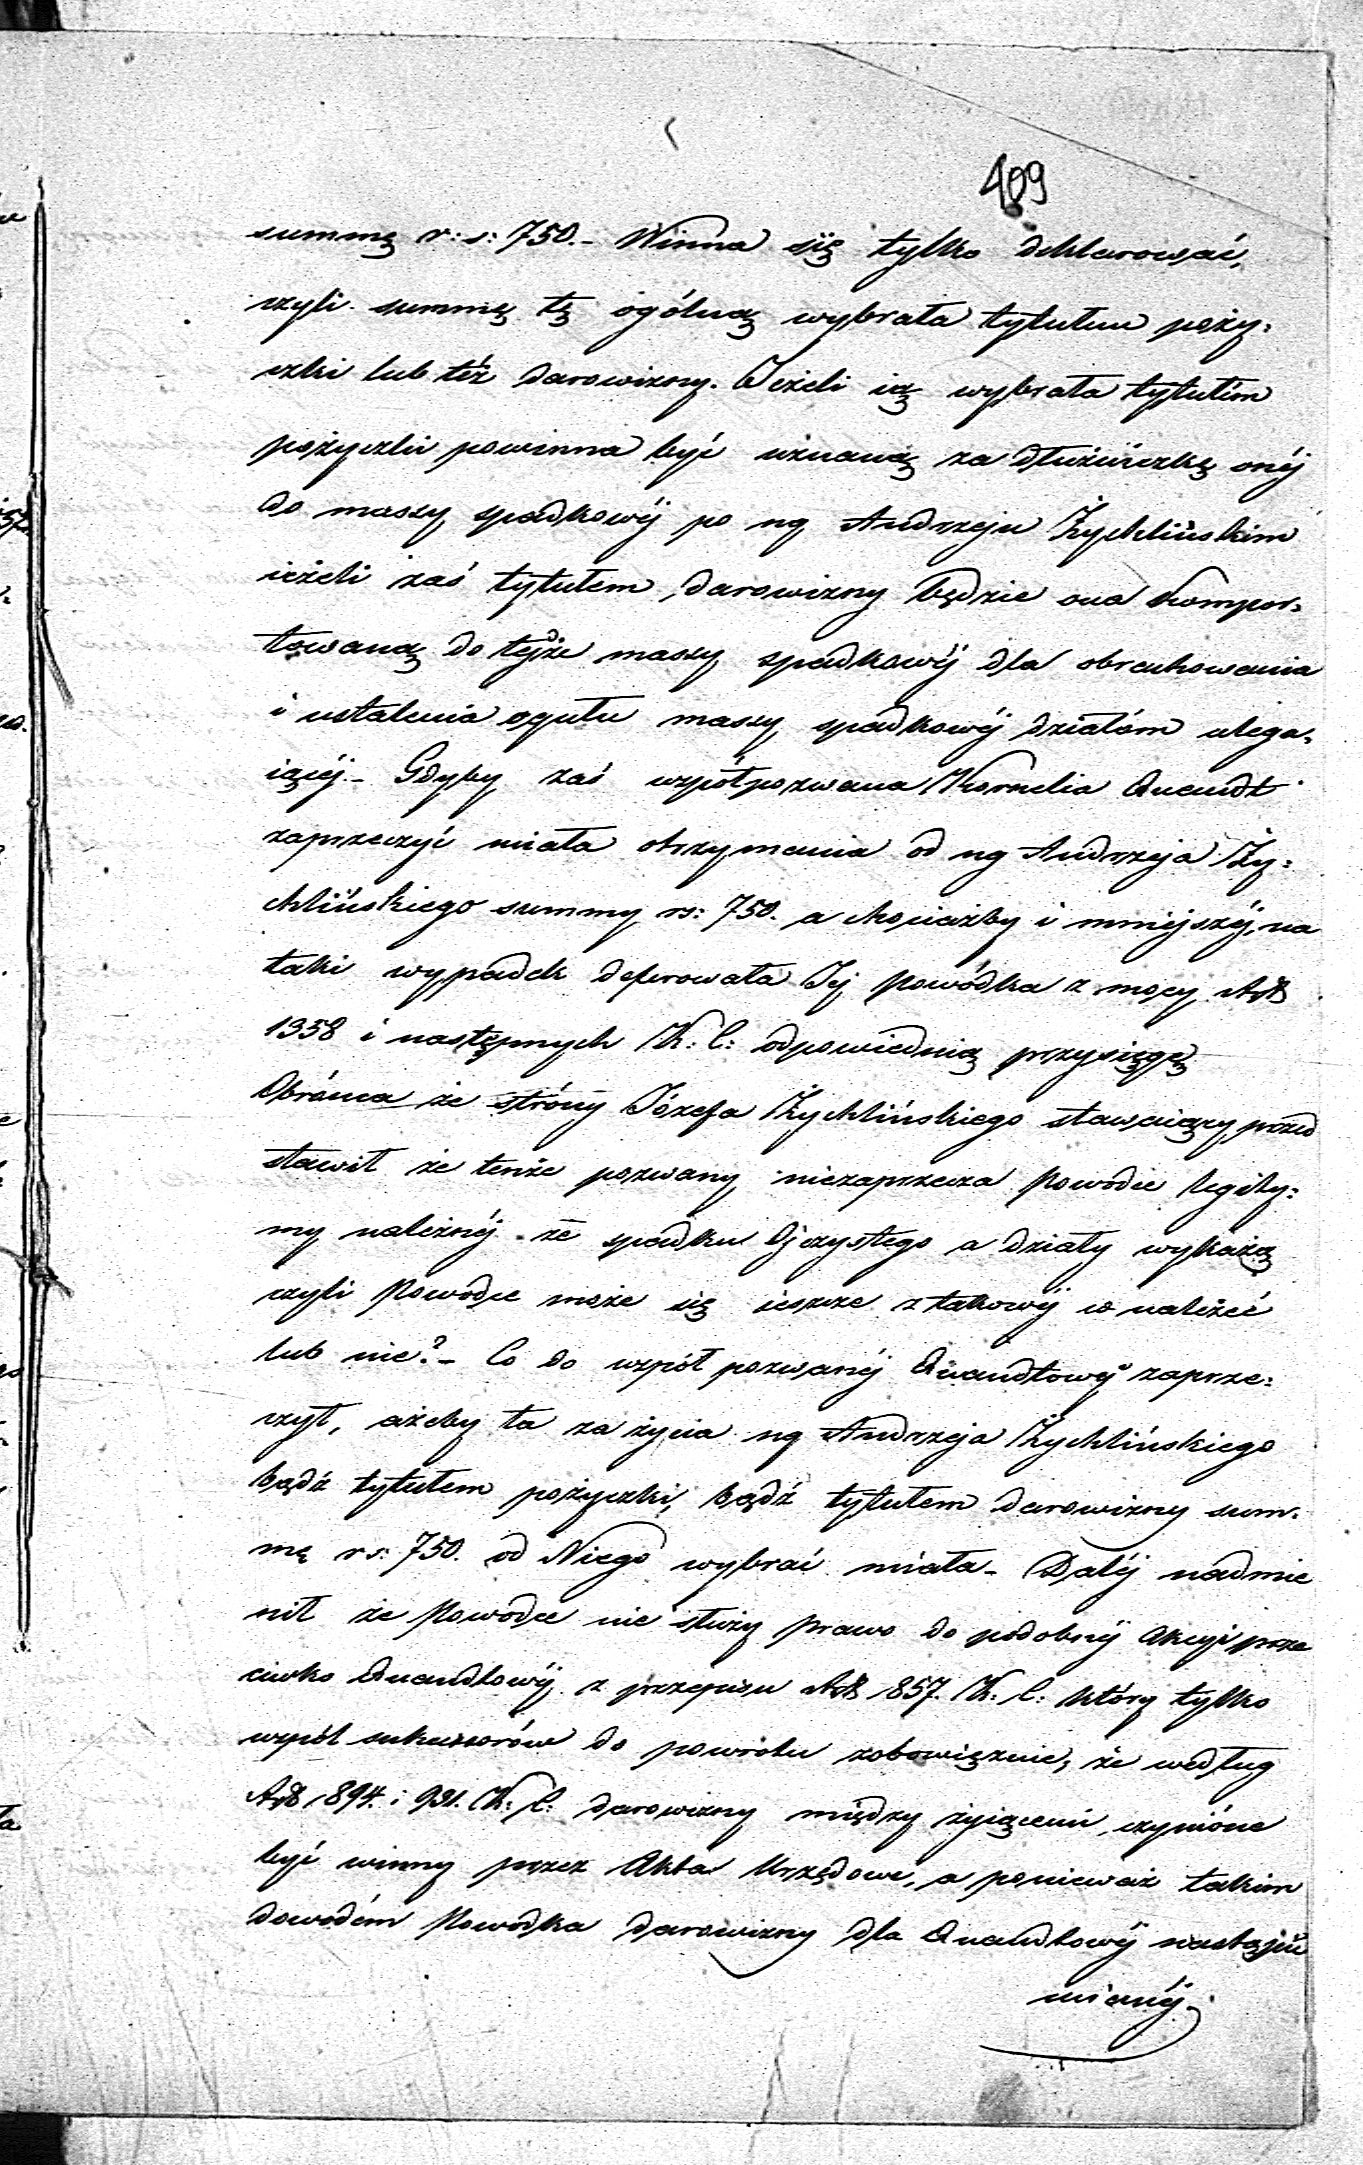 409
summę r: s: 750.- Winna się tylko deklarować,
czyli summę tę ogólną wybrała tytułem poży:
czki lub téż darowizny. Jeżeli ią wybrała tytułem
pożyczki powinna być uznaną za dłużniczkę onéj
do massy spadkowéj po ng Andrzeju Żychlińskim
ieżeli zaś tytułem darowizny będzie ona kompor:
towaną do téjże massy spadkowéj dla obrachowania
i ustalenia ogułu massy spadkowéj działóm ulega:
iącéj.- Gdyby zaś współpozwana Kornelia Quandt
zaprzeczyć miała otrzymania od ng Andrzeja Ży:
chlińskiego summy rs: 750. a chociażby i mniejszéj, na
taki wypadek deferowała Jéj Powódka z mocy Art
1358 i następnych K: C: odpowiednią przysięgę
Obrońca ze strony Józefa Żychlińskiego stawaiący przed
stawił że tenże pozwany niezaprzecza Powodce legity:
my należnéj ze spadku Ojczystego a działy wykażą
czyli Powodce może się ieszcze z takowéj co należéć
lub nie?- Co do współ pozwanéj Quandtowéj zaprze:
czył, ażeby ta za życia ng Andrzeja Żychlińskiego
bądź tytułem pożyczki, bądź tytułem darowizny sum:
mę rs: 750. od Niego wybrać miała.- Daléj nadmie
nił że Powodce nie służy prawo do podobnéj akcyi prze
ciwko Quandtowéj z przepisu Art 857. K: C: który tylko
współ sukcessorów do powrotu zobowięzuie, że według
Art 894. i 931. K: C: darowizny między żyiącemi, czynióne
być winny przez Akta Urzędowe, a ponieważ takim
dowodém Powódka darowizny dla Quandtowéj nastąpić
mianéj.